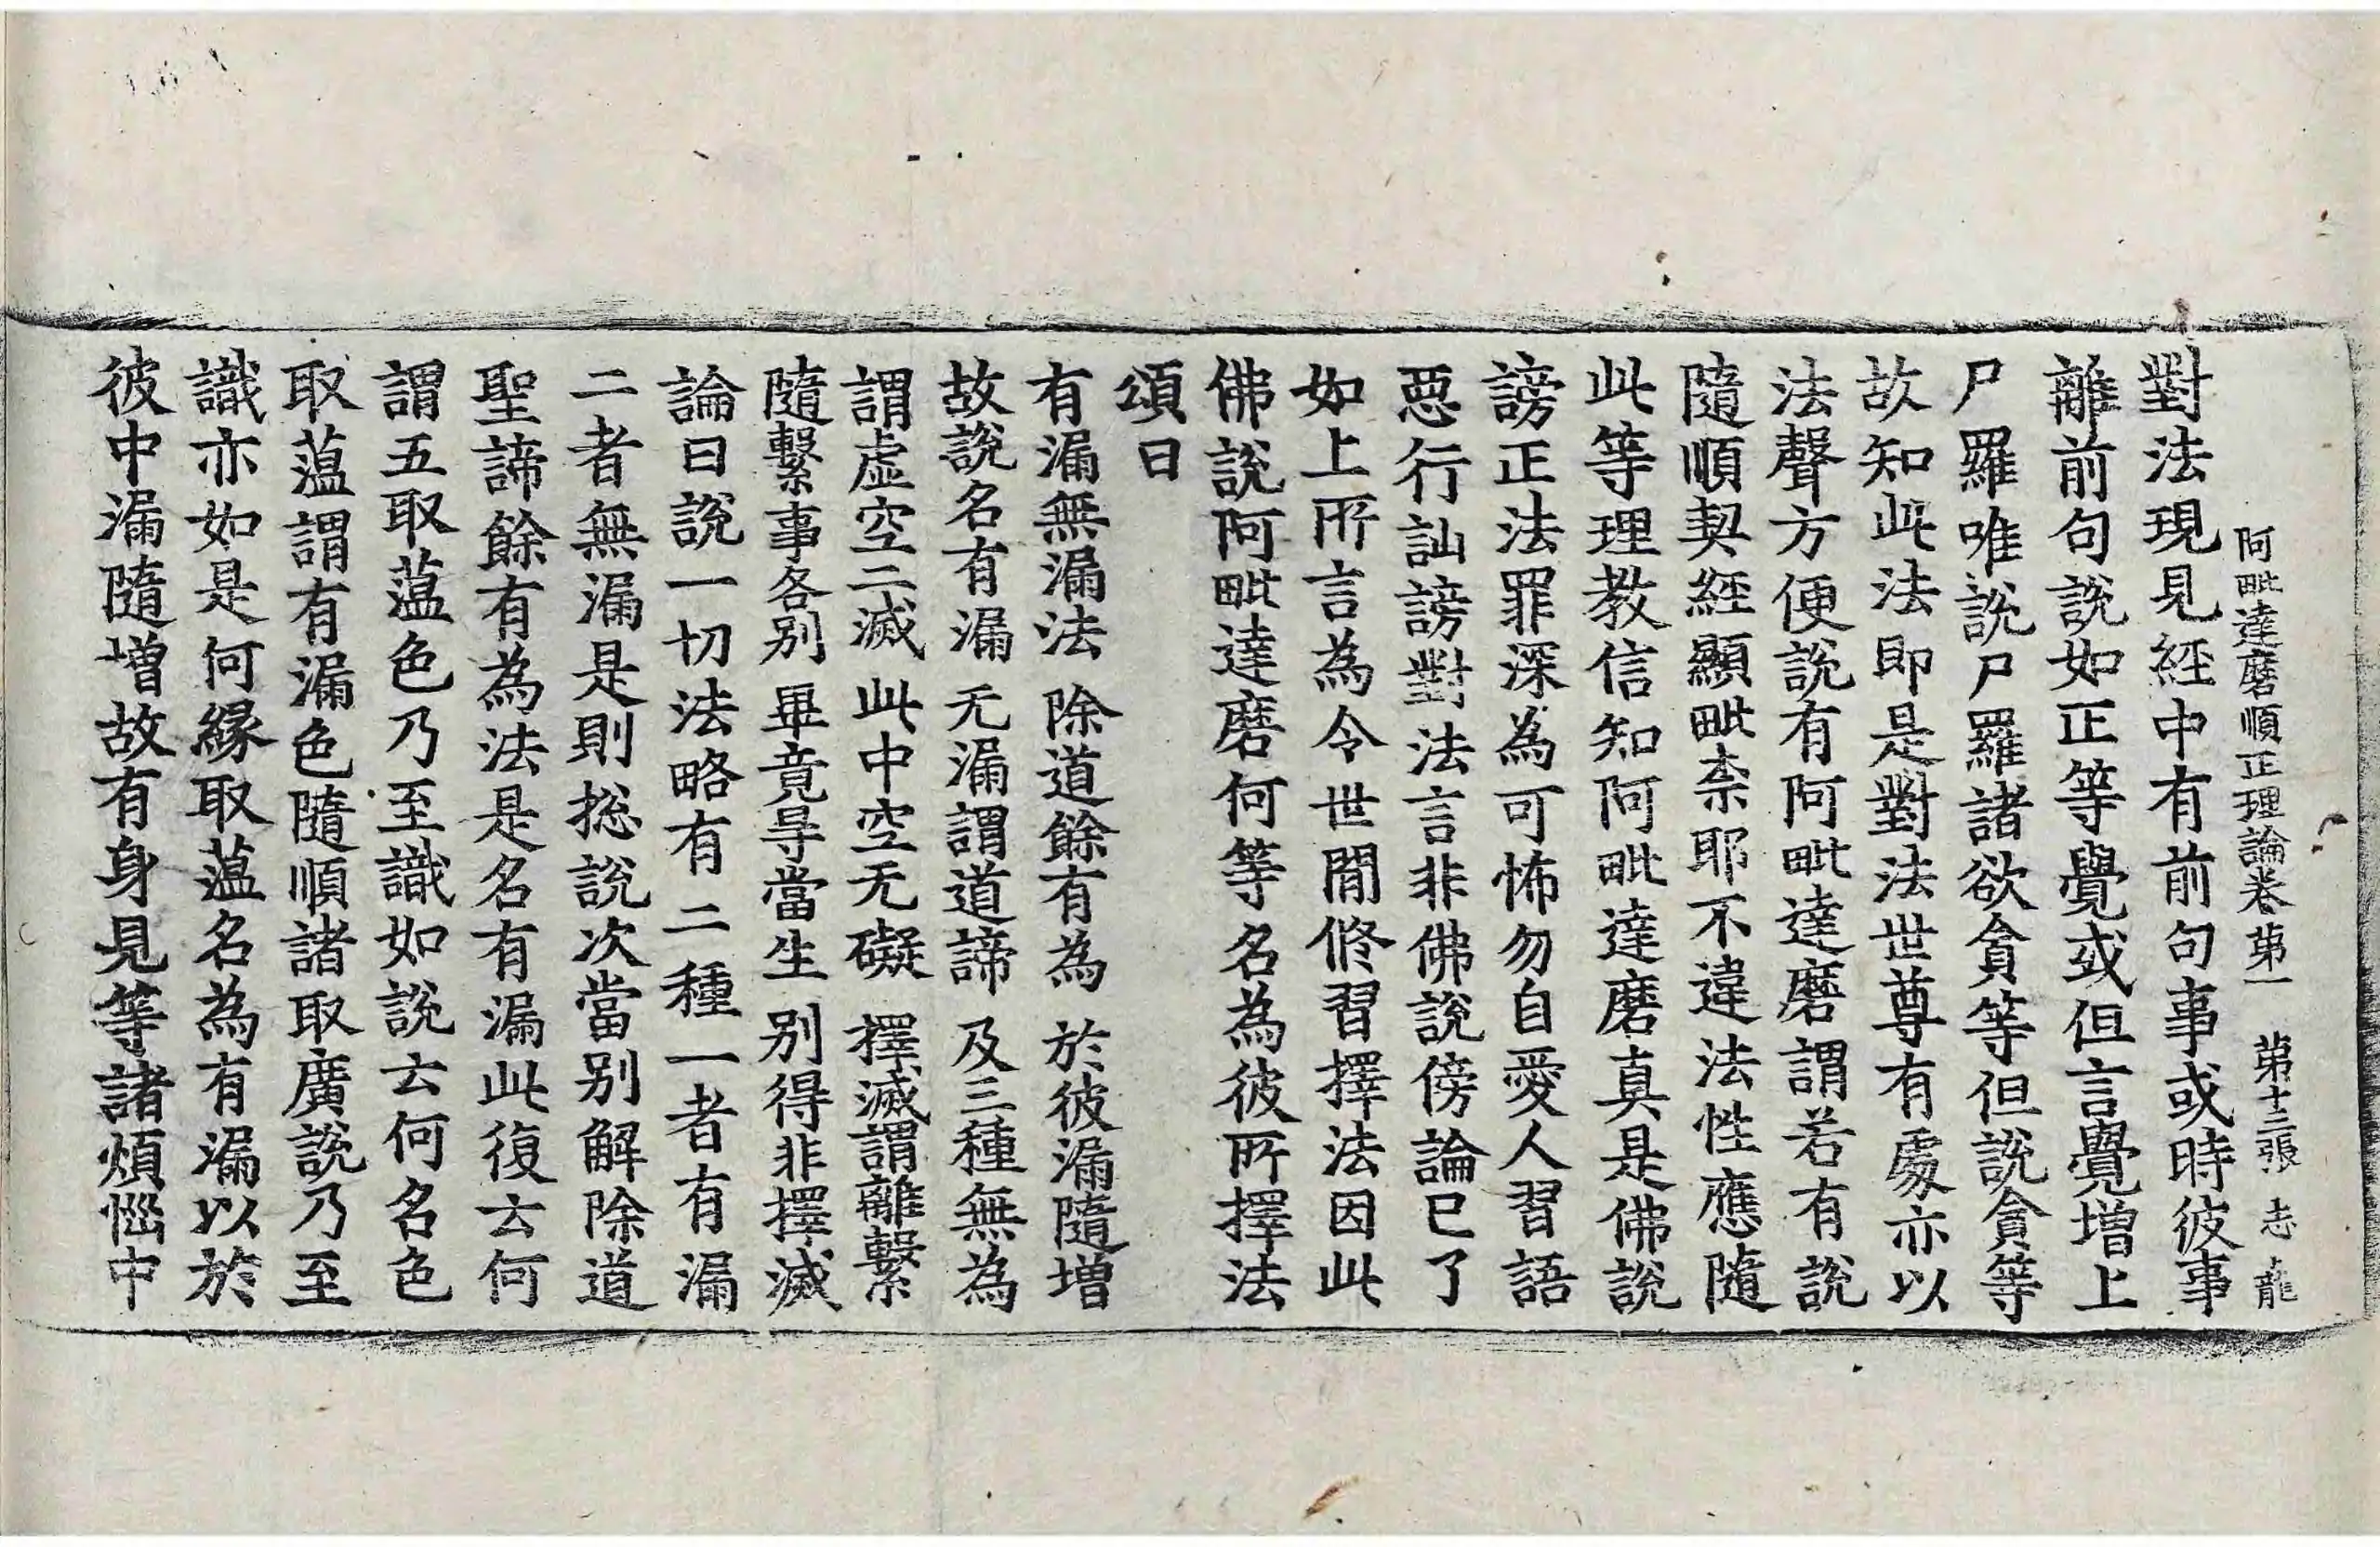 阿毗達磨順正理論卷第一 第十三張 志 龍
對法現見經中有前句事或時彼事
離前句說如正等覺或但言覺增上
尸羅唯說尸羅諸欲貪等但說貪等
故知此法即是對法世尊有處亦以
法聲方便說有阿毗達磨謂若有說
隨順契經顯毗柰耶不違法性應隨
此等理教信知阿毗達磨真是佛說
謗正法罪深為可怖勿自愛人習語
惡行訕謗對法言非佛說傍論已了
如上所言為令世間修習擇法因此
佛說阿毗達磨何等名為彼所擇法
頌曰
有漏無漏法 除道餘有為 於彼漏隨增
故說名有漏 无漏謂道諦 及三種無為
謂虛空二滅 此中空无礙 擇滅謂離繫
隨繫事各別 畢竟㝵當生 別得非擇滅
論曰說一切法略有二種一者有漏
二者無漏是則捴說次當別解除道
聖諦餘有為法是名有漏此復云何
謂五取蘊色乃至識如說云何名色
取蘊謂有漏色隨順諸取廣說乃至
識亦如是何緣取蘊名為有漏以於
彼中漏隨增故有身見等諸煩惱中